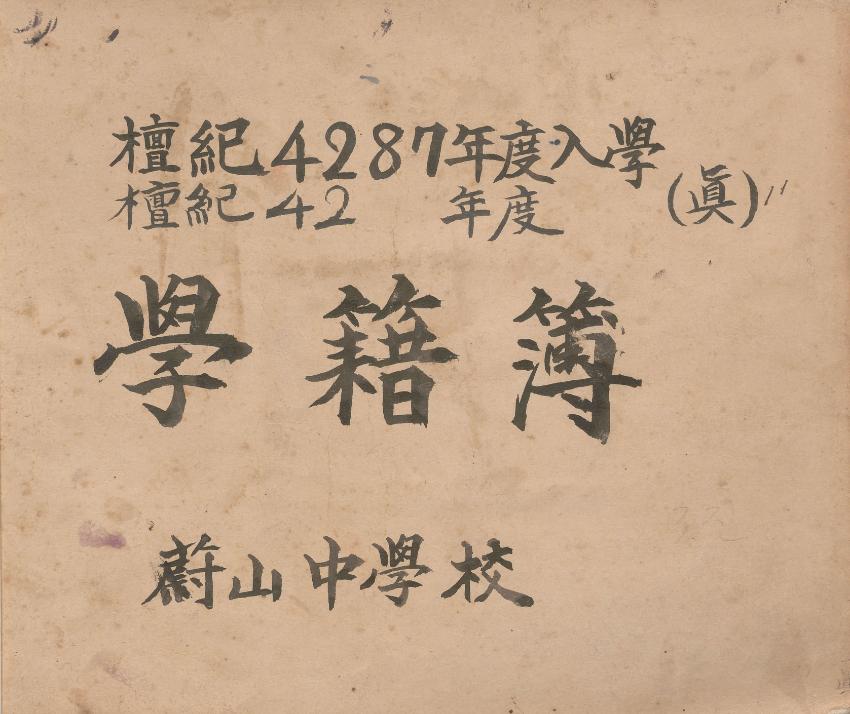 檀紀4287年度入學
(眞)
檀紀42 年度
學籍簿
蔚山中學校